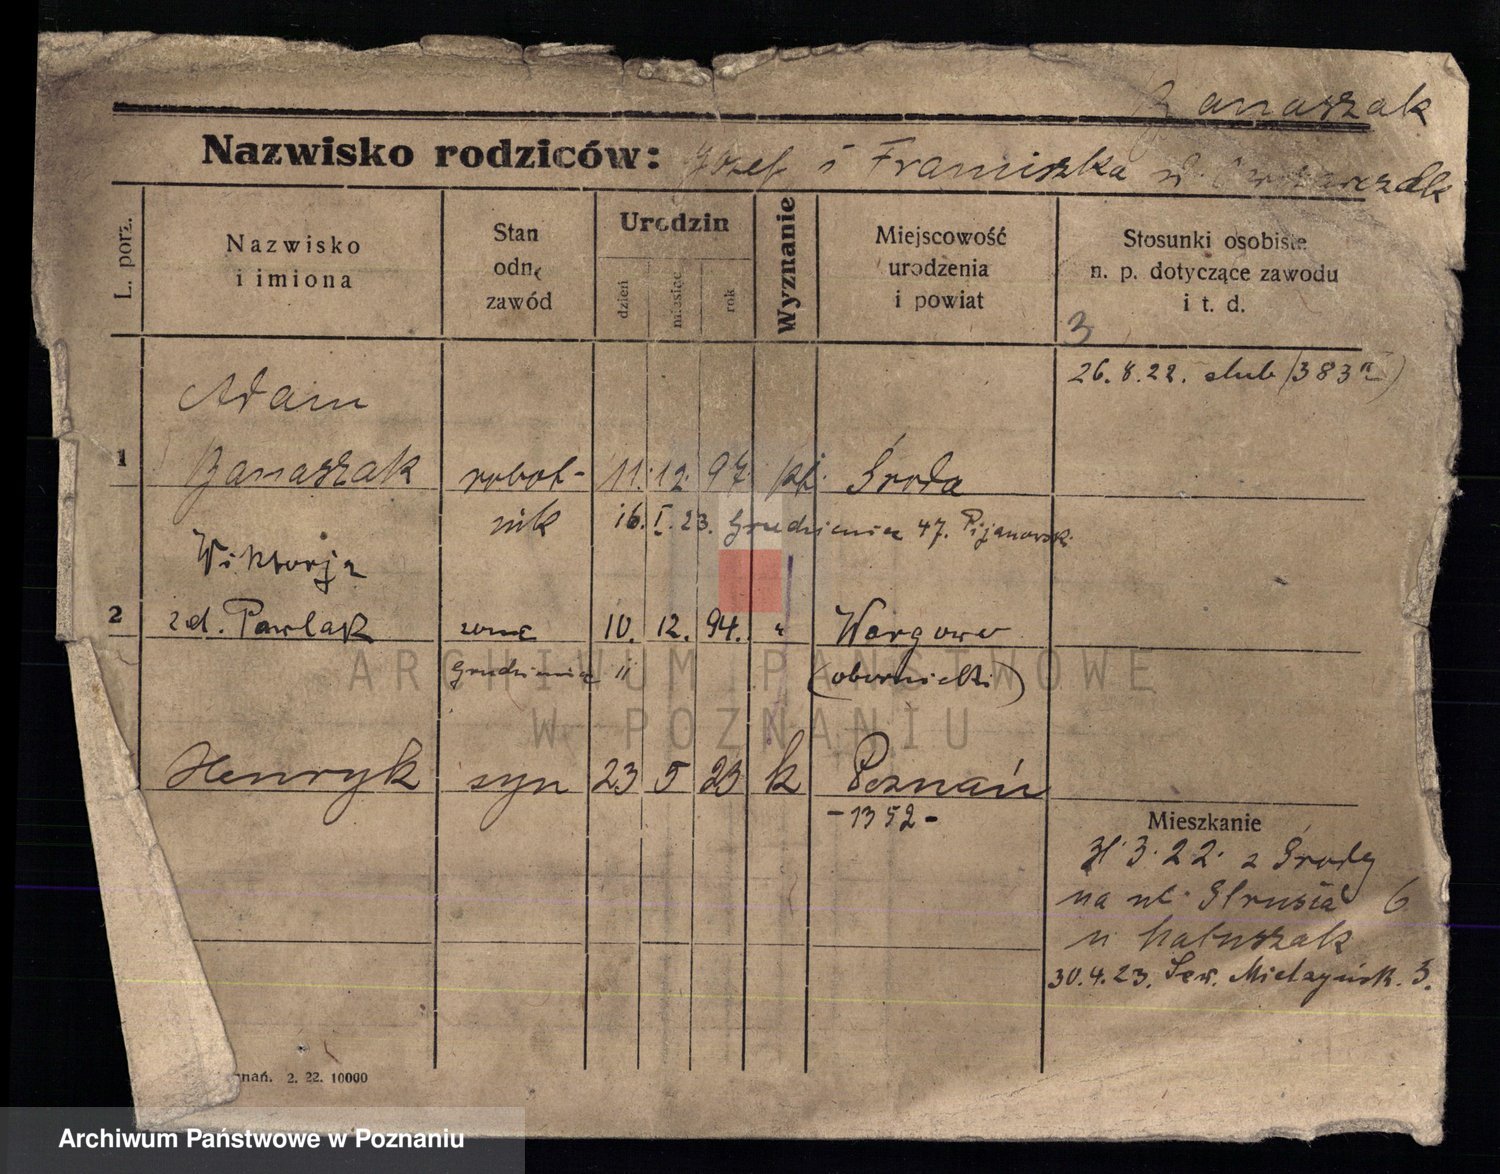 Banaszak
Nazwisko rodziców: Józef i Franciszka
L. porz.
Nazwisko i imiona
Stan odnę zawód
Urodzin
dzień
miesiąc
rok
Wyznanie
Miejscowość urodzenia i powiat
Stosunki osobiste n. p. dotyczące zawodu i t. d.
3
26. 8. 22. ślub (383
Adam
1 Banaszak robot- 11. 12. 97. kt. Środa
nik 16. I. 23. Grudzieniec 47. Pijanowski
Wiktorja
2 zd. Pawlak żona 10. 12. 94. " Wargowo
Grudzieniec 11 (obornicki)
Henryk syn 23 5 23 k Poznań
-1352-
Mieszkanie
31. 3. 22. z Środy
na ul. Strusia 6
u Matuszak
30. 4. 23. Sew. Mielżyńsk. 3.
nań. 2. 22. 10000
ARCHIWUM PAŃSTWOWE
W POZNANIU
Archiwum Państwowe w Poznaniu